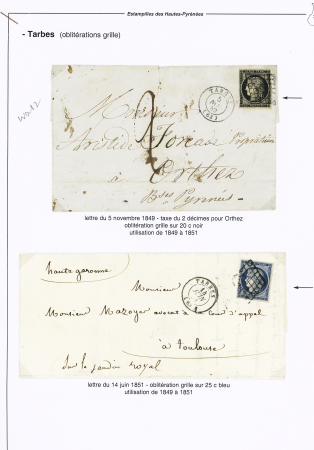 Estampilles des Hautes-Pyrénées
- Tarbes (oblitérations grille)
TARBES
5
(63)
2
Monsieur
Aristide Propriétaire
à Orthez
Bses Pyrénées
lettre du 5 novembre 1849 - taxe du 2 décimes pour Orthez
oblitération grille sur 20 c noir
utilisation de 1849 à 1851
haute garonne
TARBES
14
JUIN
Monsieur
Monsieur Mazoyer avocat à la cour d'appel
à toulouse
sur le jardin royal
lettre du 14 juin 1851 - oblitération grille sur 25 c bleu
utilisation de 1849 à 1851